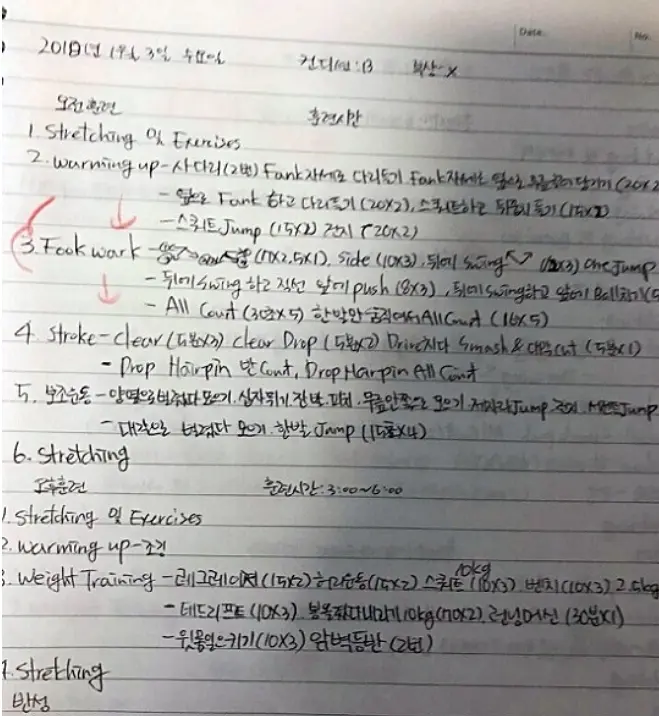 Date. No.
2018년 1월 3일 수요일 컨디션:B 부상:X
오전훈련 훈련시간
1. Stretching 및 Exercises
2. warming up - 사다리(2번) Fank자세로 다리들기 Fank자세로 앞으로 (20x2
- 옆으로 Fank 하고 다리들기(20x2), 스쿼트하고 뒤꿈치들기(15x2)
- 스쿼트Jump (15x2) 전지 (20x2)
3. Fook wark - (10x2, 5x1). side (10x3), 뒤에 swing (10x3) one Jump
- 뒤에 swing 하고 직선 앞에 push (8x3), 뒤에 swing하고 앞에
- All Court (30초x5) 한발만 움직여서 All Court (16x5)
4. stroke - clear (5분x3) clear Drop (5분x2) Drive치다 Smash & 대각cut (5분x1)
- Drop Hairpin 반Cont, Drop Hairpin All Cont
5. 보조운동 - 양옆으로 벌렸다 모으기. 십자뛰기 Jump Jump
- 대각으로 벌렸다 모으기. 한발 Jump (15초x4)
6. Stretching
오후훈련 훈련시간:3:00~6:00
1. Stretching 및 Exercises
2. warming up - 조깅
Weight Training - 레그레이저(15x2) 허리운동(15x2) 스쿼트 10kg (10x3). 벤치(10x3) 2.5kg
- 테드리프트 (10x3). 10kg(70x2). 런닝머신 (30분x1)
- 윗몸일으키기(10x3) 암벽등반 (2번)
Stretching
반성